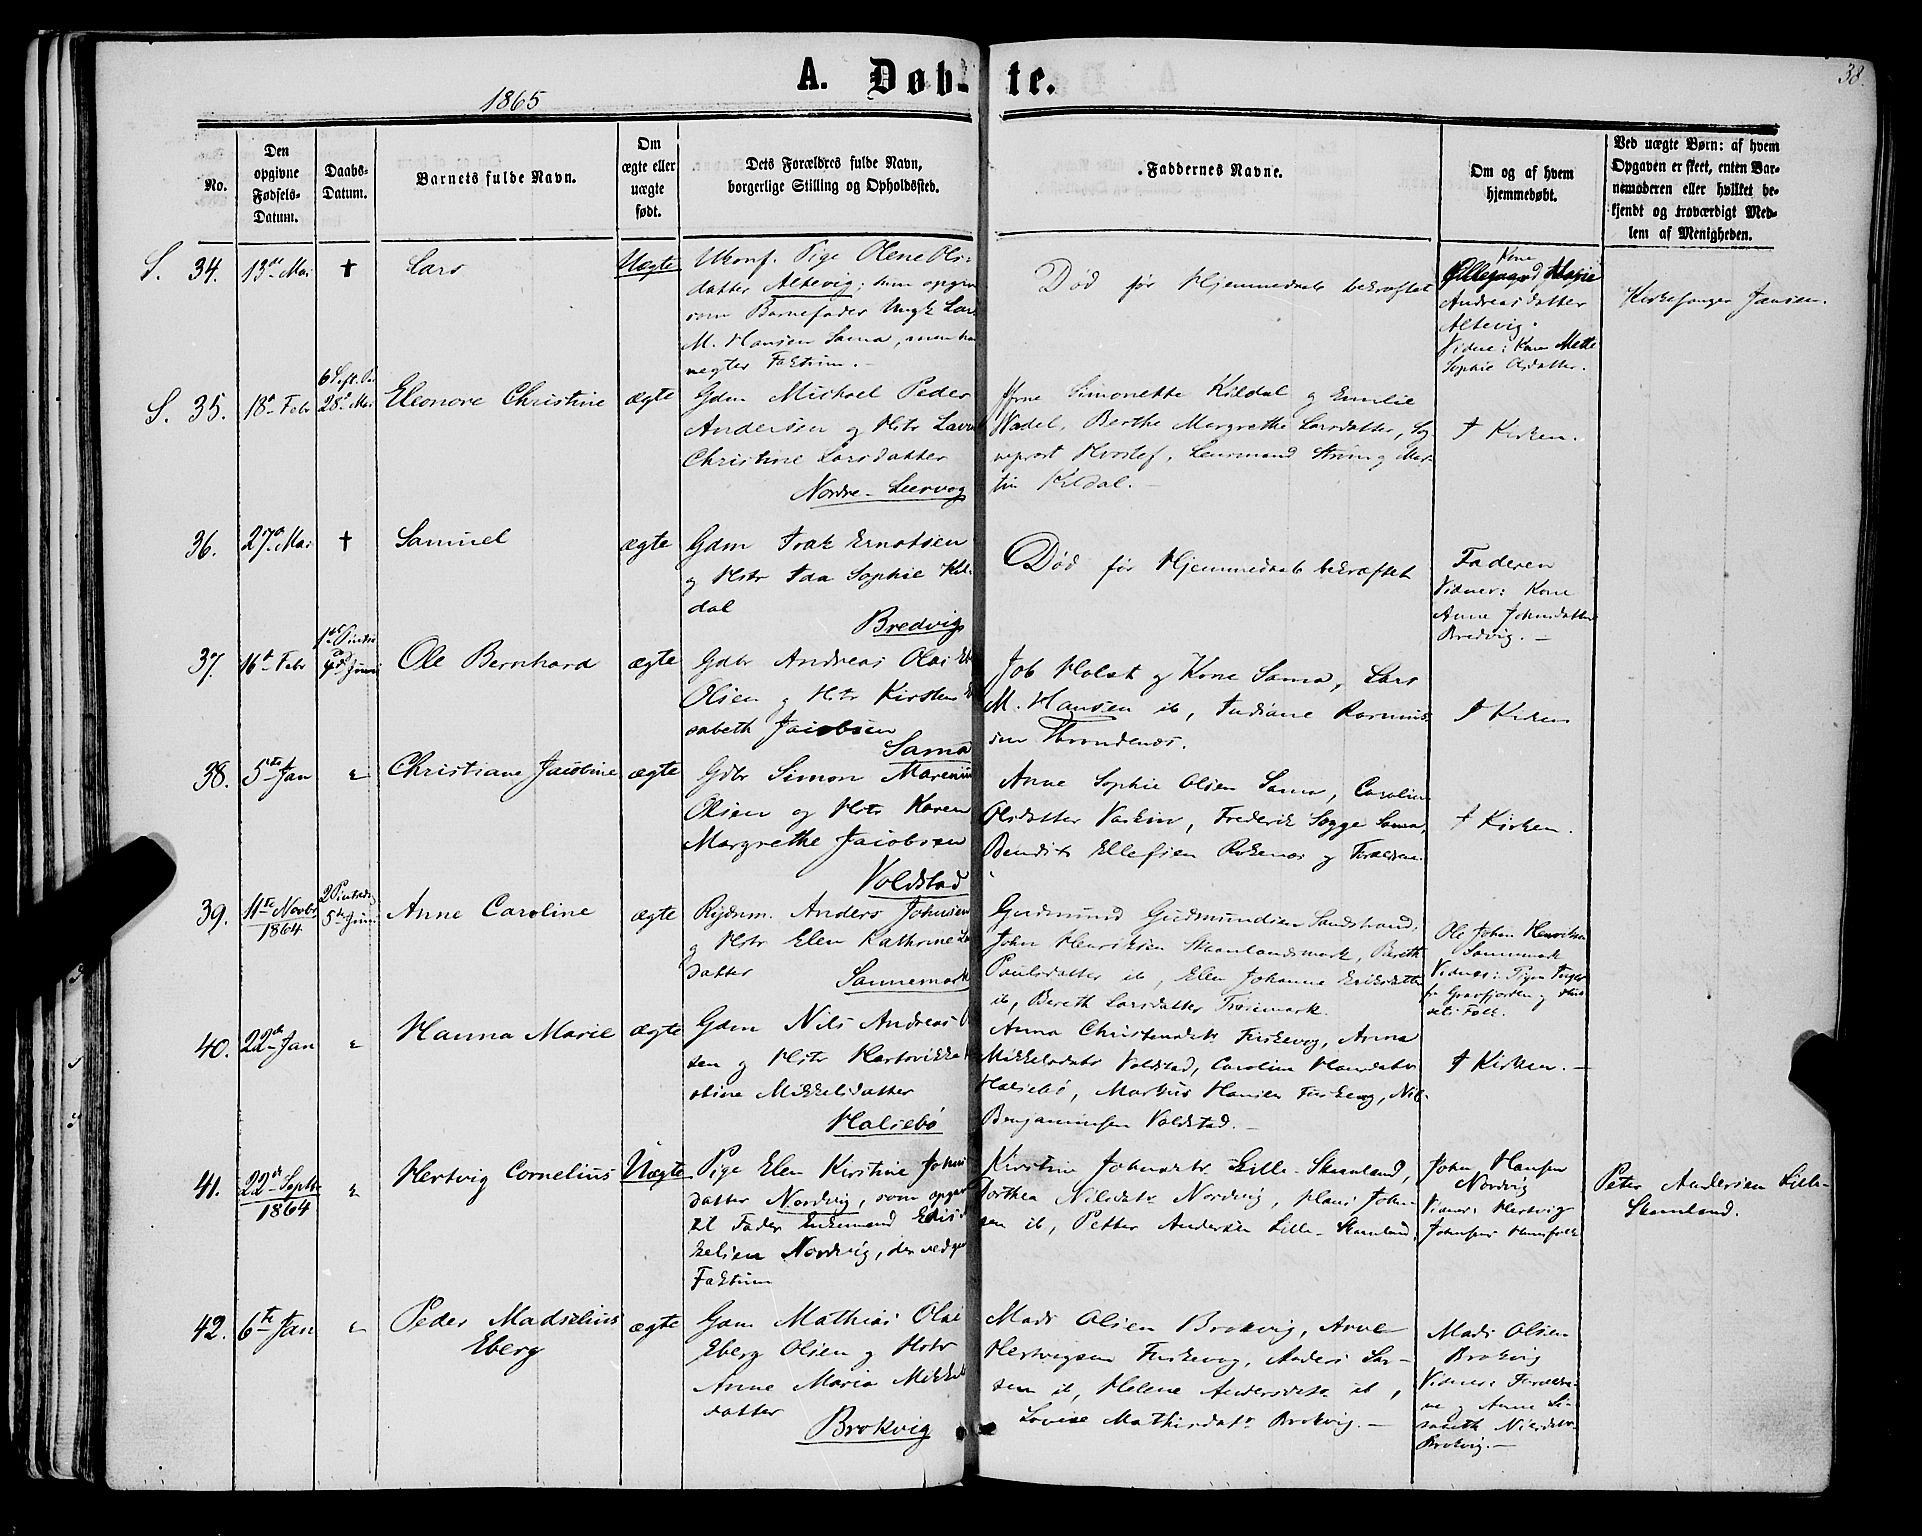 38.
A. Døb- te.
1865
No.
Den opgivne Fødsels-Datum.
Daabs-Datum.
Barnets fulde Navn.
Om ægte eller uægte født.
Dets Forældres fulde Navn, borgerlige Stilling og Opholdssted.
Faddernes Navne.
Om og af hvem hjemmedøbt.
Ved uægte Børn: af hvem Opgaven er skeet, enten Barnemoderen eller hvilket bekjendt og troværdigt Medlem af Menigheden.
S. 34. 13de Mai † Lars Uægte
Ukonf. Pige Olene Ols-
datter Altevig; hun opgiv
som Barnefader Ungk Lars
M. Hansen Sama, men han
negter Faktum.
Død før Hjemmedaab bekræftet
Kone
Andreasdatter
Altevig.
Vidne: Kone Mette
Sophie Olsdatter.
Kirkesanger Jansen.
S. 35. 18de Febr 28de Mai Eleonore Christine ægte
Gdm Michael Peder
Anderssen og Hstr Lavi
Christine Larsdatter
Nordre-Leervog
Simonette Kildal og Emilie
Wadel, Berthe Margrethe Larsdatter, Sog-
neprest Hvoslef, Lensmand Strøm og Mar-
tin Kildal.
I Kirken.
36. 27de Mai † Samuel ægte
Gdm Isak Ernstsen
og Hstr Ida Sophie Kil-
dal
Bredvig
Død før Hjemmedaab bekræftet
Faderen
Vidner: Kone
Anne Johnsdatter
Bredvig.
37. 16de Febr 4de Juni Ole Bernhard ægte
Gdbr Andreas Olai Eb
Olsen og Hstr Kirsten E
sabeth Jacobsen
Sama
Job Holst og Kone Sama, Lars
M. Hansen ib, Indiane Rasmus-
sen Throndenes.
I Kirken
38. 5te Jan " Christiane Jacobine ægte
Gdbr Simon Marenius
Olsen og Hstr Karen
Margrethe Jacobsen
Voldstad
Anne Sophie Olsen Sama, Caroline
Olsdatter, Frederik Sama,
Bendik Ellefsen og Forældrene.
I Kirken.
39. 11te Novbr 1864 2 Pintsedag 5te Juni Anne Caroline ægte
Rydnm. Anders Johnsen
og Hstr Elen Kathrine La
datter
Sannemark
Gudmund Gudmundsen Sandstrand,
John Henriksen Skaanlandsmark, Bereth
Paulsdatter ib, Elen Johanne Eriksdatter
ib, Bereth Larsdatter Trøsemark.
Ole Johan Henriksen
Sannmark
Vidner: Pigen
fr Gravfjorden og
Folk.
40. 22de Jan " Hanna Marie ægte
Gdm Nils Andreas
sen og Hstr Hertvikke
stine Mikkelsdatter
Halsebø
Anna Christensdtr Fuskevog, Anna
Mikkelsdatr Voldstad, Caroline Hansdatr
Halsebø, Markus Hansen Fuskevog, Nils
Benjaminsen Voldstad.
I Kirken.
41. 22de Septbr 1864 " Hertvig Cornelius Uægte
Pige Elen Kirstine Johns
datter Nordvig, som opgav
til Fader Enkemand
kelsen Nordvig, der vedgik
Faktum
Kirstine Johnsdtr Lille-Skaanland,
Dorthea Nilsdatr Nordvig, Hans John-
sen ib, Petter Andersen Lille-Skaanland,
John Hansen
Nordvig
Vidner: Hertvig
Johnsens Huusfolk
Peter Andersen Lille-
Skaanland.
42. 6te Jan " Peder Madselius
Eberg ægte
Gdm Mathias Olai
Eberg Olsen og Hstr
Anne Maria Mikkels
datter
Brokvig
Mads Olsen Brokvig, Arne
Hertvigsen Fuskevog, Anders Lar-
sen ib, Helene Andersdatr ib,
Lovise Mathisdatr Brokvig.
Mads Olsen
Brokvig
Vidner: Forældre-
ne og Anne Li-
sabeth Nilsdatr
Brokvig.